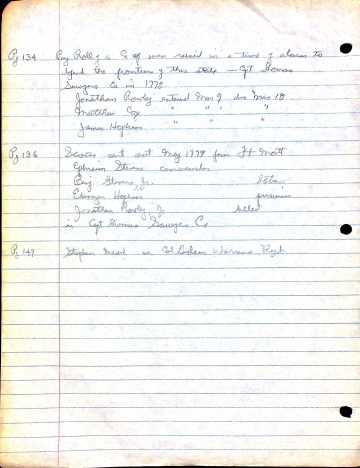 Pg 134 Pay Roll of a Co of men raised in a time of alarm to
defend the frontiers of this state — Cpt Thomas
Sawyers Co in 1778
Jonathan Rowley entered Mar 9 dis Mar 18
Matthew Cox " " "
James Hopkins " " "
Pg 136 Scouts sent out May 1779 from Ft Mott
Ephraim Stevens commander
Benj Stevens, Jr.
Ebenezer Hopkins prisoner
Jonathan Rowley, Jr killed
in Cpt Thomas Sawyers Co
Pg 147 Stephen Mead in Col Gideon Warrens Regt